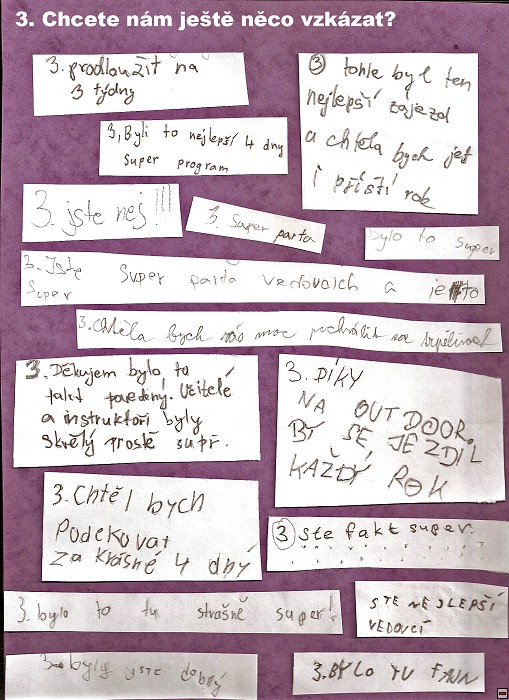 3. Chcete nám ještě něco vzkázat?
3. prodloužit na
3 týdny
3 tohle byl ten
nejlepší zajezd
a chtěla bych jet
i příští rok
3, Byli to nejlepší 4 dny
super program
3. jste nej!!!
3. Super parta
bylo to super
3. Jste super parta vedoucích a je to
super
3. Chtěla bych vás moc pochválit za trpělivost
3. Děkujem bylo to
talst povedený. Učitelé
a instruktoři byly
skvělý prostě supr.
3. DÍKY
NA OUTDOOR.
BY SE JEZDIL
KAŽDÝ ROK
3. Chtěl bych
Poděkovat
za krásné 4 dny
3 ste fakt super.
3. bylo to tu strašně super!
STE NEJLEPŠÍ
VEDOUCÍ
3. byly jste dobrý
3. BYLO TU FAJN